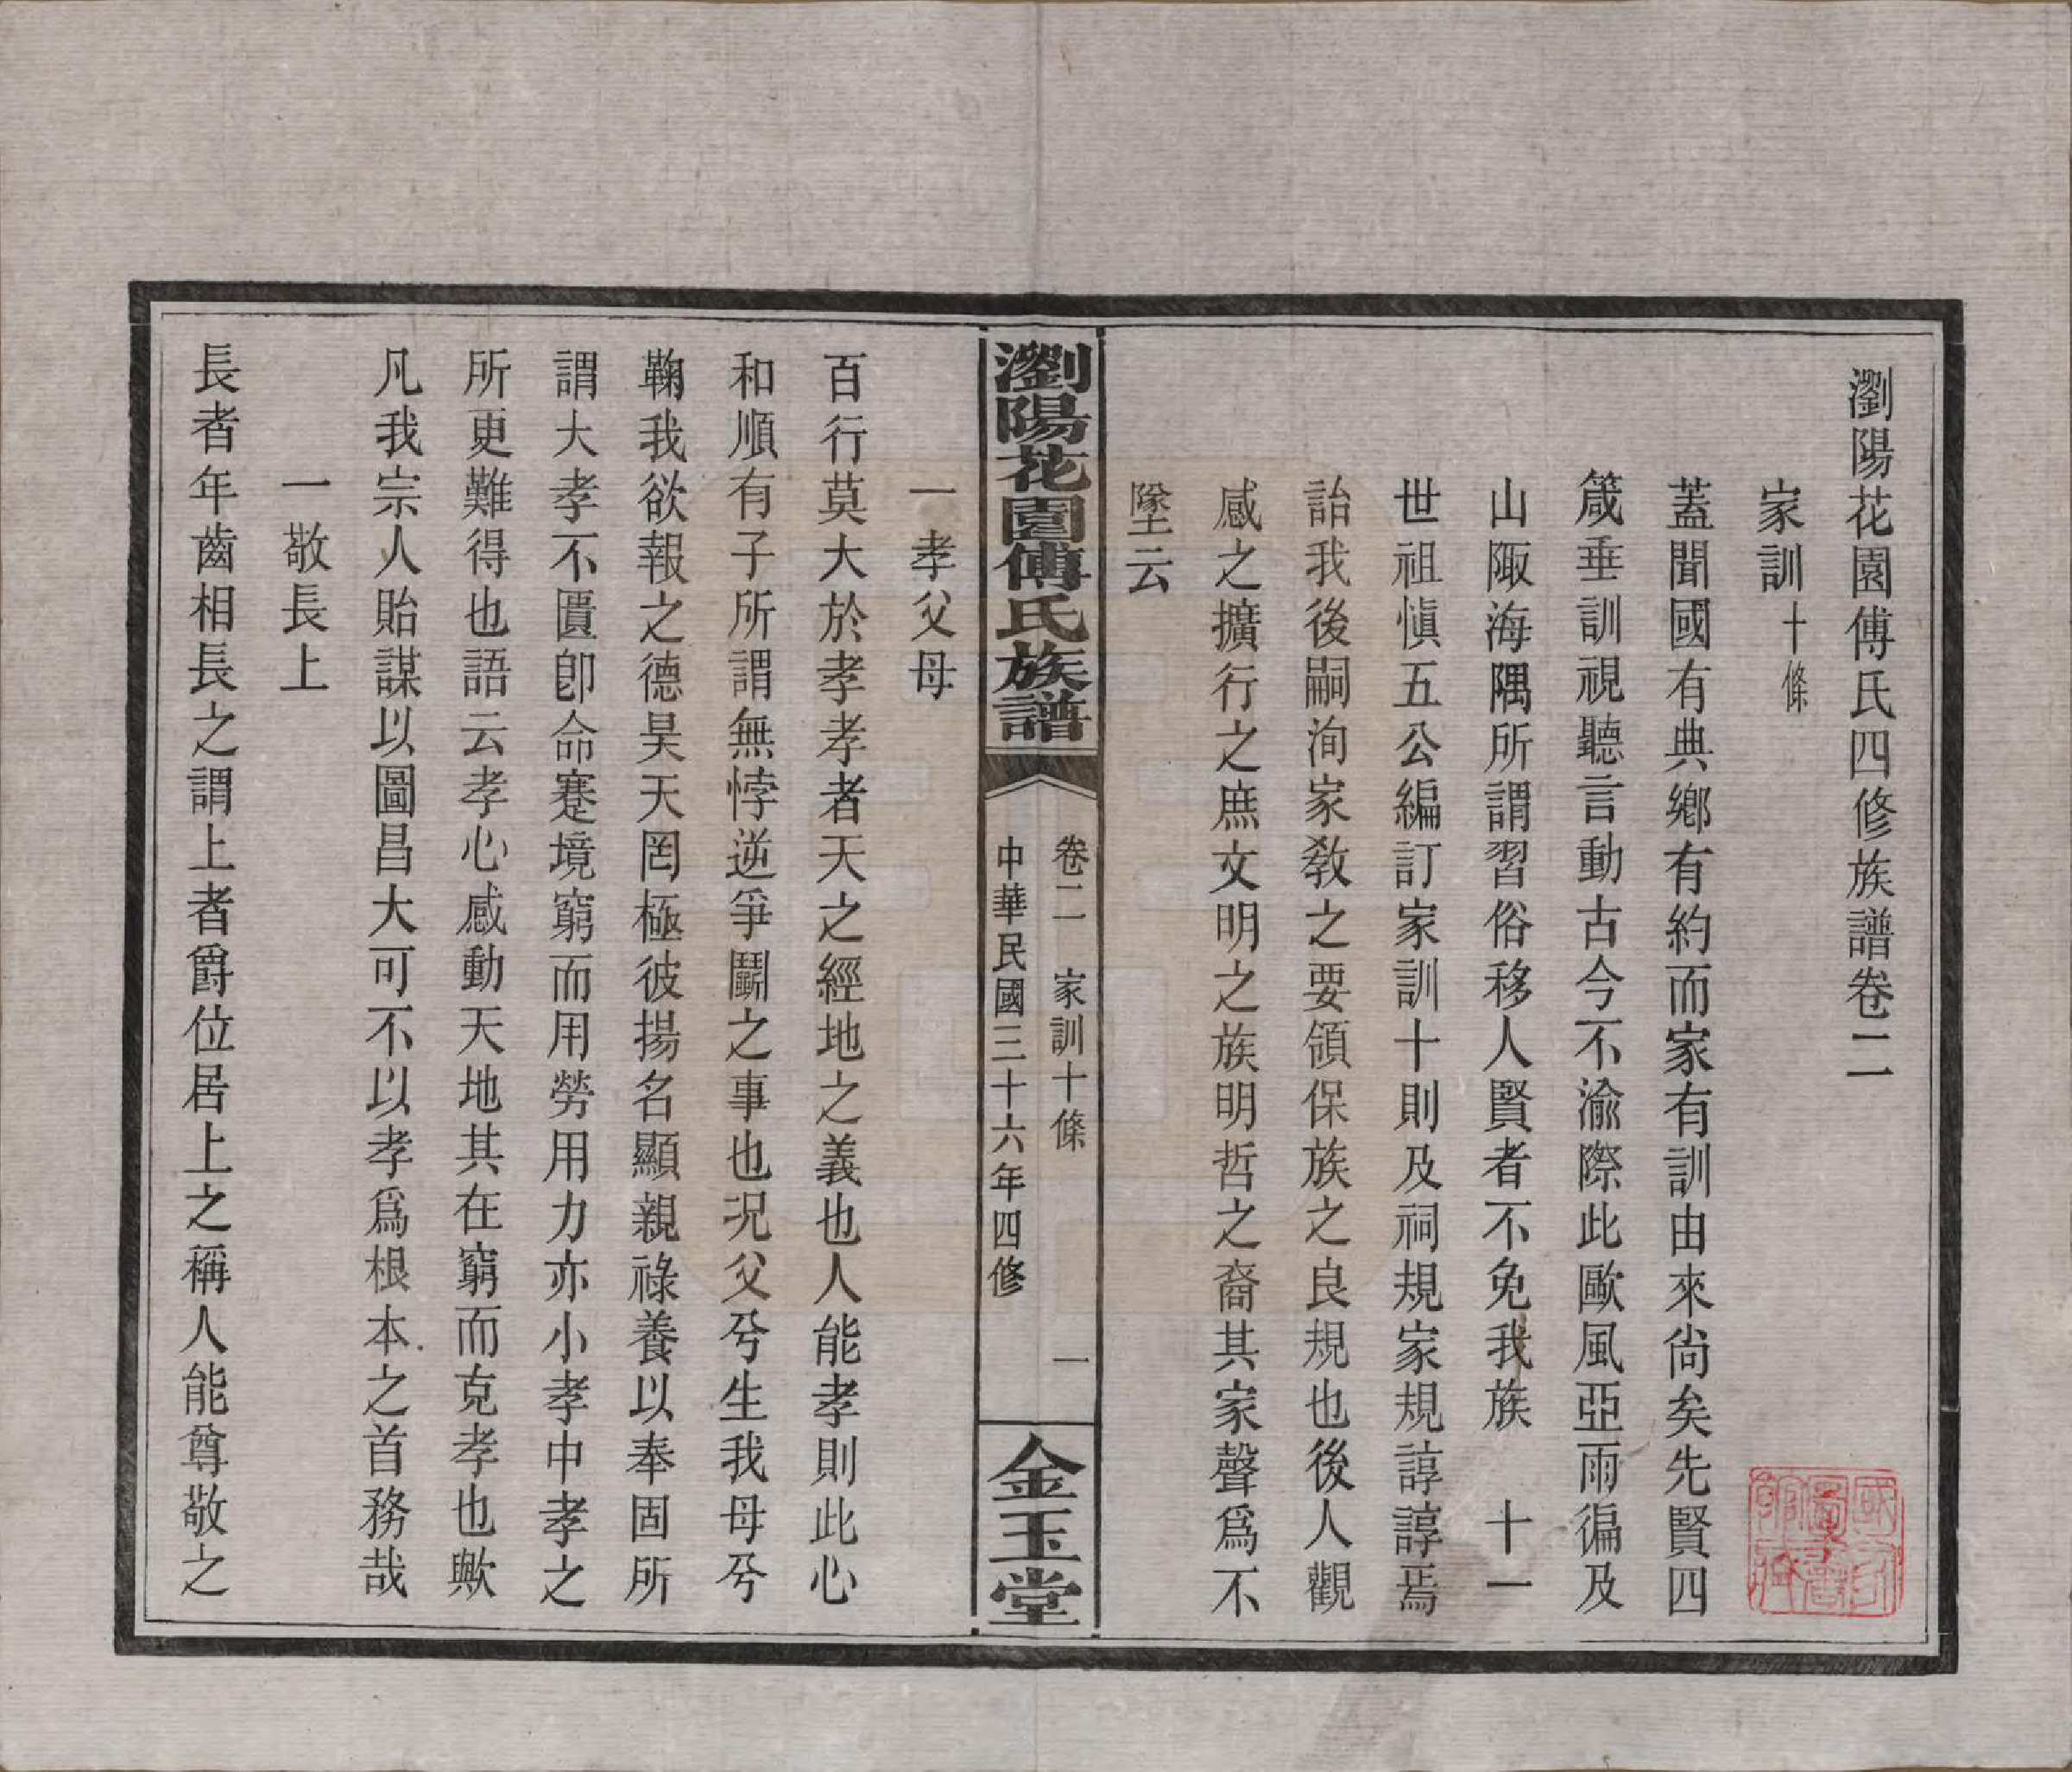 瀏陽花園傅氏四修族譜卷二
家訓十條
蓋聞國有典鄉有約而家有訓由來尙矣先賢四
箴垂訓視聽言動古今不渝際此歐風亞雨徧及
山陬海隅所謂習俗移人賢者不免我族　十一
世祖愼五公編訂家訓十則及祠規家規諄諄焉
詒我後嗣洵家敎之要領保族之良規也後人觀
感之擴行之庶文明之族明哲之裔其家聲爲不
墜云
瀏陽花園傅氏族譜
卷二　家訓十條　一
中華民國三十六年四修
金玉堂
一孝父母
百行莫大於孝孝者天之經地之義也人能孝則此心
和順有子所謂無悖逆爭鬬之事也况父兮生我母兮
鞠我欲報之德昊天罔極彼揚名顯親祿養以奉固所
謂大孝不匱卽命蹇境窮而用勞用力亦小孝中孝之
所更難得也語云孝心感動天地其在窮而克孝也歟
凡我宗人貽謀以圖昌大可不以孝爲根本之首務哉
一敬長上
長者年齒相長之謂上者爵位居上之稱人能尊敬之